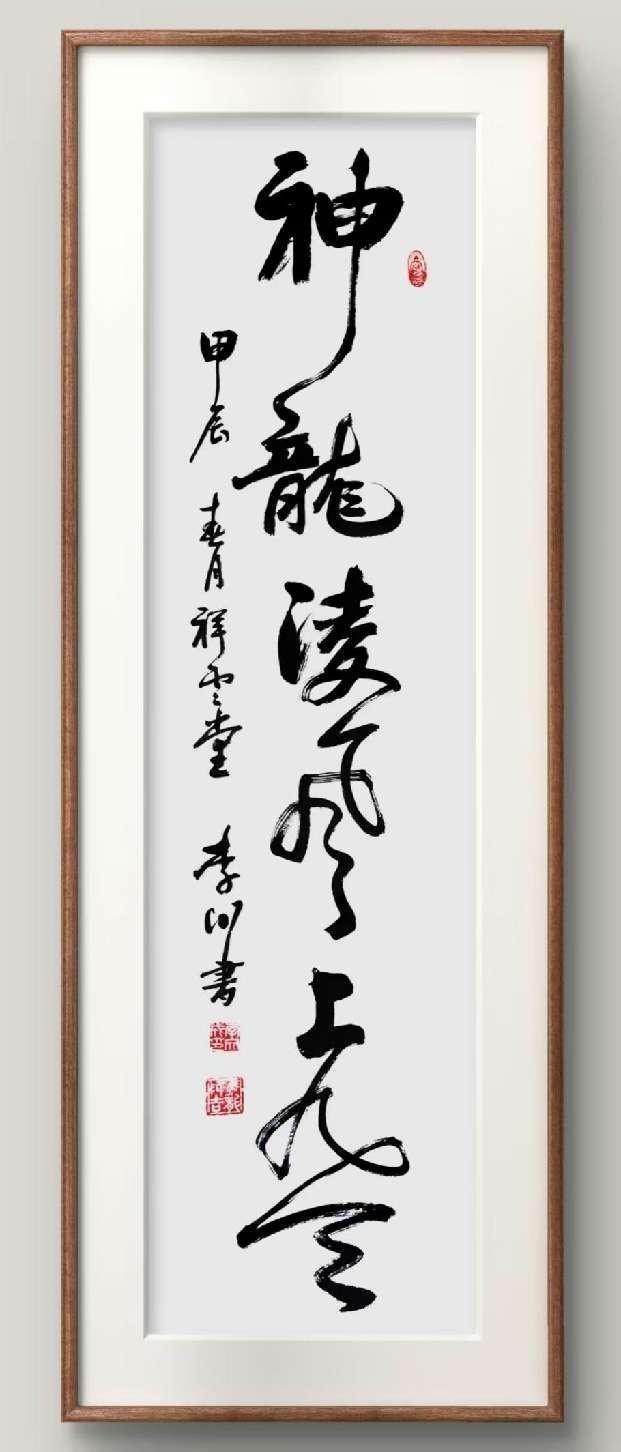 神龍凌風上九天
甲辰 春月 祥雲堂 李 書